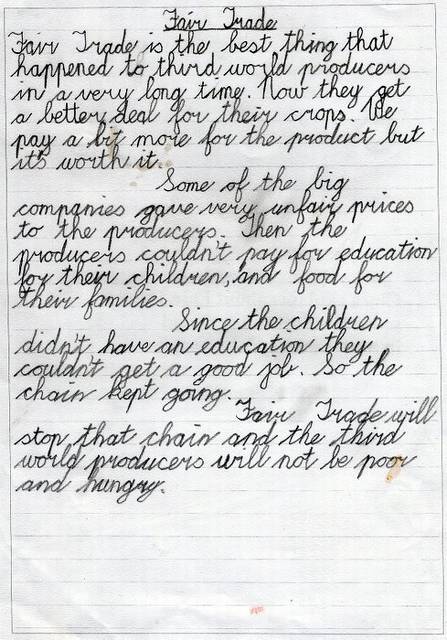 Fair Trade
Fair Trade is the best thing that
happened to third world producers
in a very long time. Now they get
a better deal for their crops. We
pay a bit more for the product but
it's worth it.
Some of the big
companies gave very unfair prices
to the producers. Then the
producers couldn't pay for education
for their children, and food for
their families.
Since the children
didn't have an education they
couldn't get a good job. So the
chain kept going.
Fair Trade will
stop that chain and the third
world producers will not be poor
and hungry.